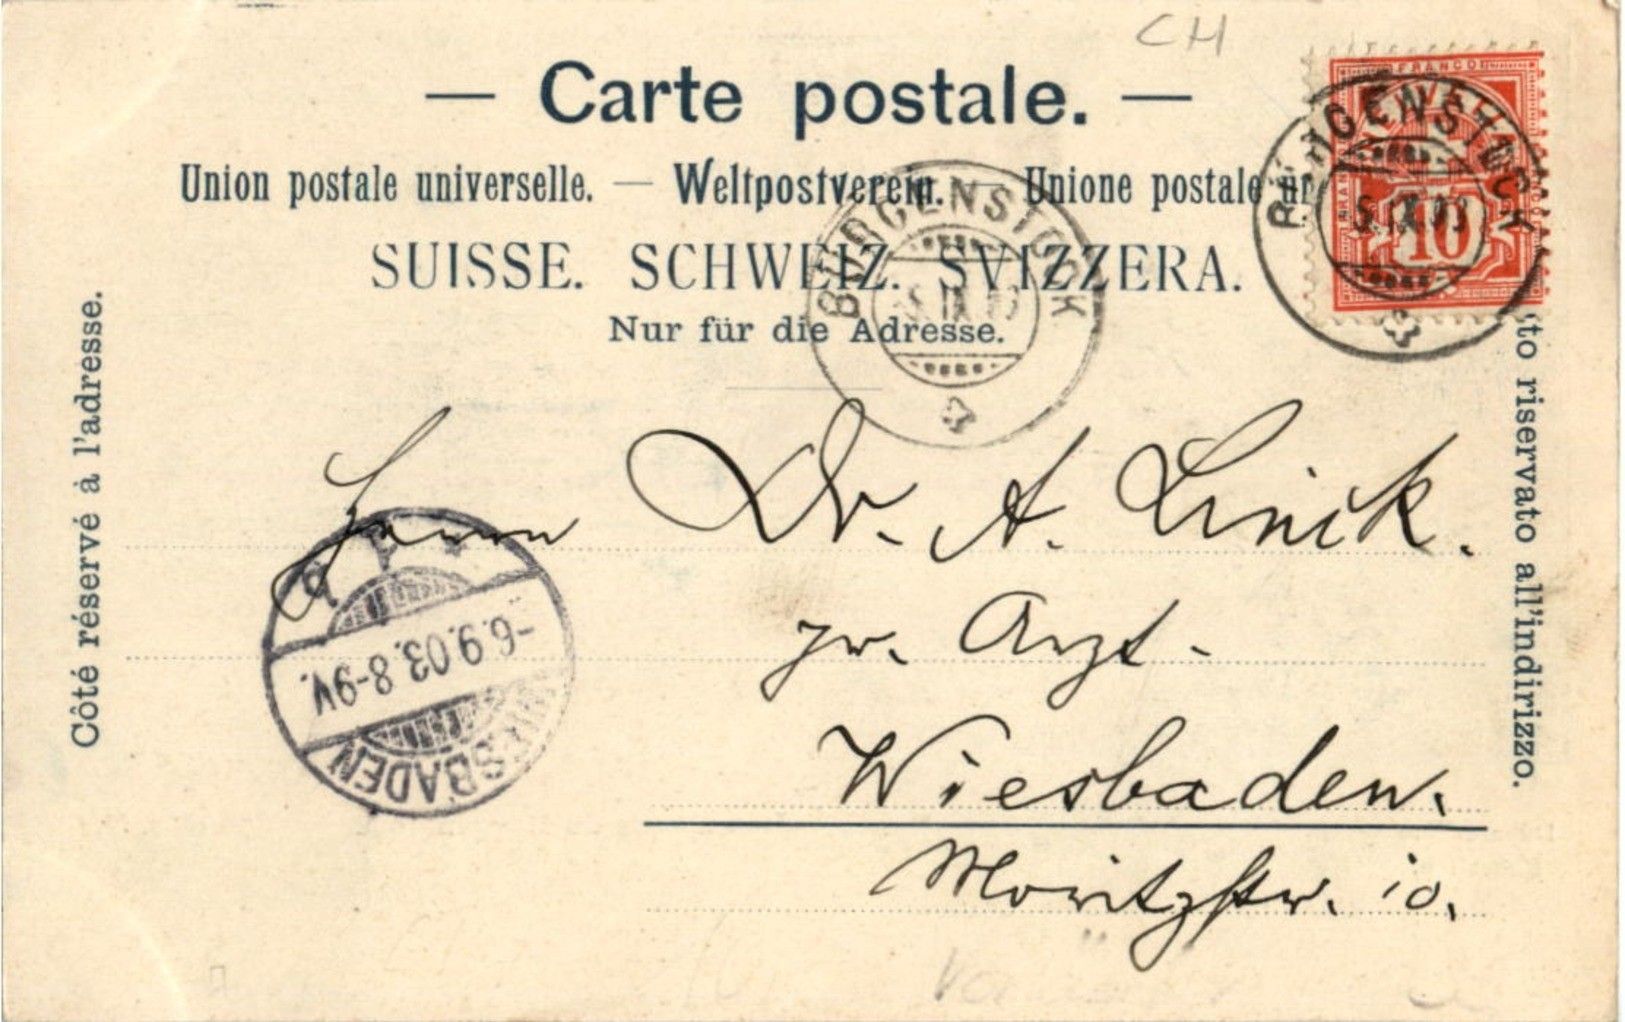 CH
— Carte postale. —
Union postale universelle. — Weltpostverein. — Unione postale un
SUISSE. SCHWEIZ. SVIZZERA.
Nur für die Adresse.
Côté réservé à l'adresse.
to riservato all'indirizzo.
FRANCO
10
BÜRGENSTOCK
5.IX.03
BÜRGENSTOCK
5.IX.03
Herrn Dr. A. Linick.
pr. Arzt.
Wiesbaden.
Moritzstr. 10.
WIESBADEN
-6.9.03.8-9V.